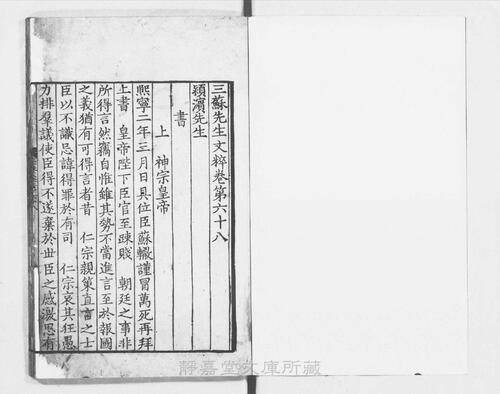 三蘇先生文粹卷第六十八
潁濱先生
書
上　神宗皇帝
熙寧二年三月日具位臣蘇轍謹冒萬死再拜
上書　皇帝陛下臣官至踈賤　朝廷之事非
所得言然竊自惟雖其勢不當進言至於報國
之義猶有可得言者昔　仁宗親策直言之士
臣以不識忌諱得罪於有司　仁宗哀其狂愚
力排羣議使臣得不遂棄於世臣之感激思有
靜嘉堂文庫所藏